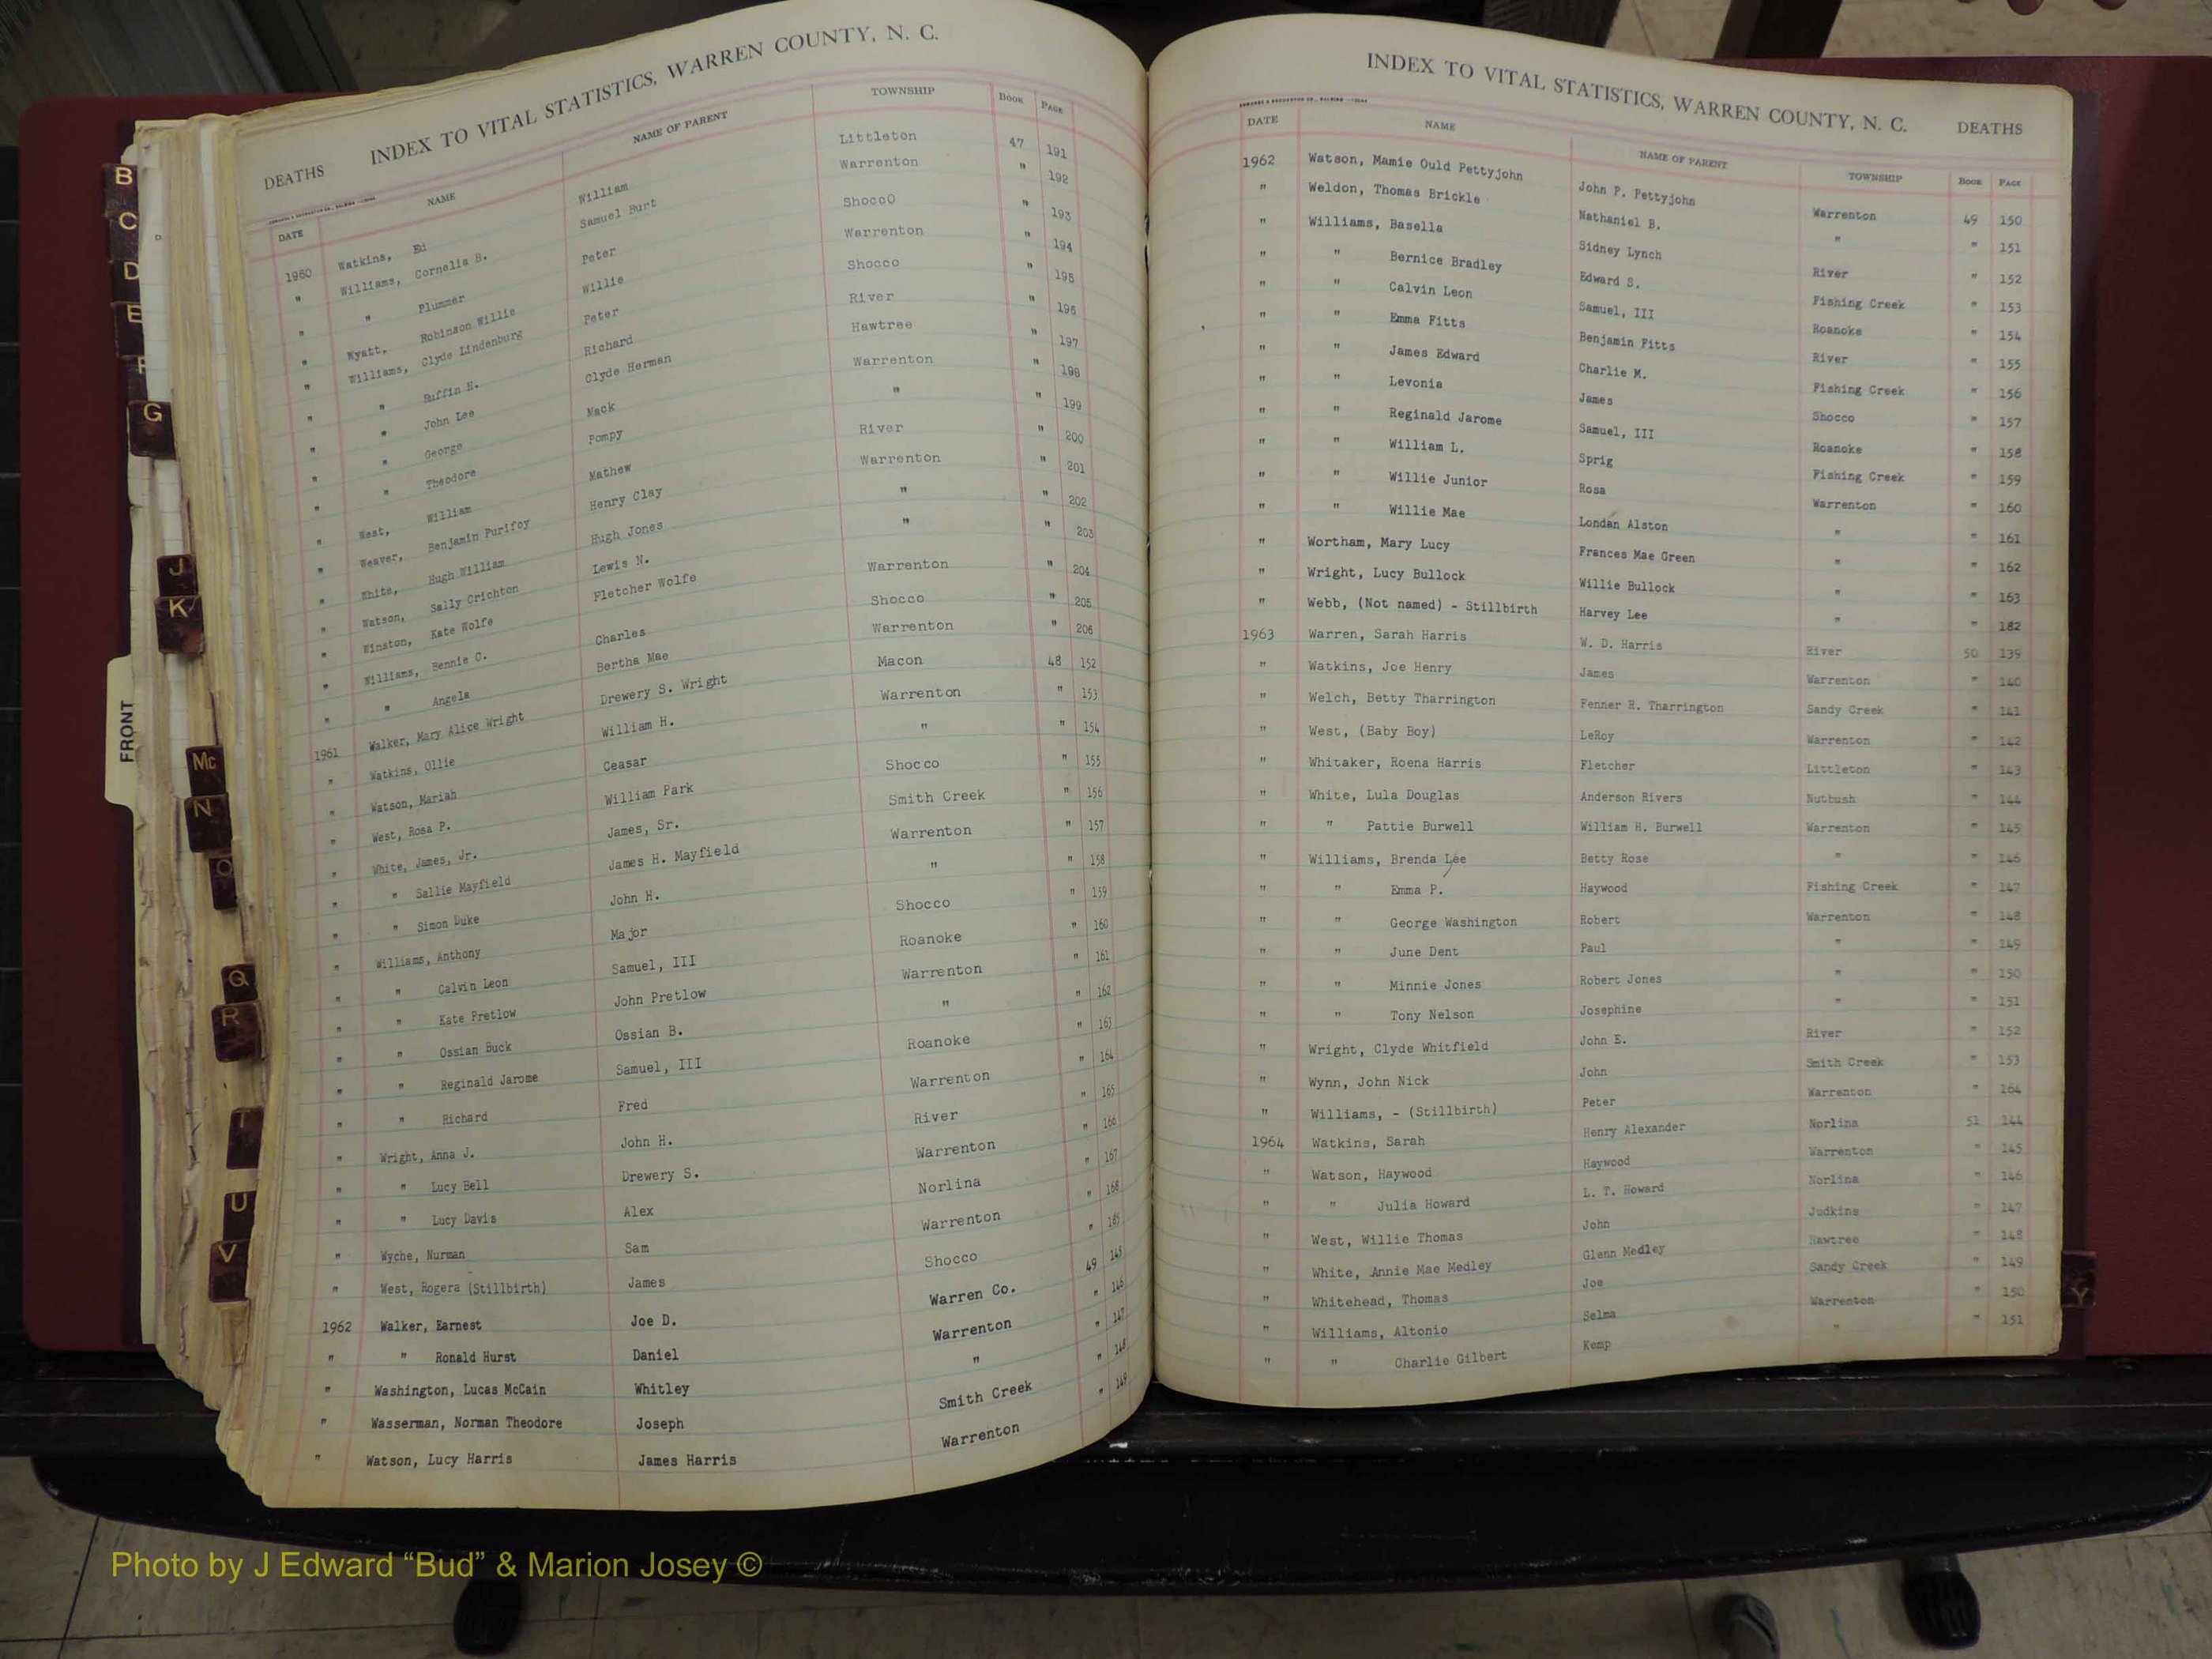 INDEX TO VITAL STATISTICS, WARREN COUNTY, N. C.
DEATHS
DATE NAME NAME OF PARENT TOWNSHIP BOOK PAGE
1960 Watkins, Ed William Littleton 47 191
" Williams, Cornelia B. Samuel Burt Warrenton " 192
" " Plummer Peter ShoccO " 193
" Wyatt, Robinson Willie Willie Warrenton " 194
" Williams, Clyde Lindenburg Peter Shocco " 195
" " Ruffin H. Richard River " 196
" " John Lee Clyde Herman Hawtree " 197
" " George Mack Warrenton " 198
" " Theodore Pompy " " 199
" West, William Mathew River " 200
" Weaver, Benjamin Purifoy Henry Clay Warrenton " 201
" White, Hugh William Hugh Jones " " 202
" Watson, Sally Crichton Lewis N. " " 203
" Winston, Kate Wolfe Fletcher Wolfe Warrenton " 204
" Williams, Bennie C. Charles Shocco " 205
" " Angela Bertha Mae Warrenton " 206
1961 Walker, Mary Alice Wright Drewery S. Wright Macon 48 152
" Watkins, Ollie William H. Warrenton " 153
" Watson, Mariah Ceasar " " 154
" West, Rosa P. William Park Shocco " 155
" White, James, Jr. James, Sr. Smith Creek " 156
" " Sallie Mayfield James H. Mayfield Warrenton " 157
" " Simon Duke John H. " " 158
" Williams, Anthony Major Shocco " 159
" " Calvin Leon Samuel, III Roanoke " 160
" " Kate Pretlow John Pretlow Warrenton " 161
" " Ossian Buck Ossian B. " " 162
" " Reginald Jarome Samuel, III Roanoke " 163
" " Richard Fred Warrenton " 164
" Wright, Anna J. John H. River " 165
" " Lucy Bell Drewery S. Warrenton " 166
" " Lucy Davis Alex Norlina " 167
" Wyche, Nurman Sam Warrenton " 168
" West, Rogera (Stillbirth) James Shocco "
1962 Walker, Earnest Joe D. Warren Co. 49 145
" " Ronald Hurst Daniel Warrenton " 146
" Washington, Lucas McCain Whitley " " 147
" Wasserman, Norman Theodore Joseph Smith Creek " 148
" Watson, Lucy Harris James Harris Warrenton " 149
INDEX TO VITAL STATISTICS, WARREN COUNTY, N. C. DEATHS
DATE NAME NAME OF PARENT TOWNSHIP BOOK PAGE
1962 Watson, Mamie Ould Pettyjohn John P. Pettyjohn Warrenton 49 150
" Weldon, Thomas Brickle Nathaniel B. " " 151
" Williams, Basella Sidney Lynch River " 152
" " Bernice Bradley Edward S. Fishing Creek " 153
" " Calvin Leon Samuel, III Roanoke " 154
" " Emma Fitts Benjamin Fitts River " 155
" " James Edward Charlie M. Fishing Creek " 156
" " Levonia James Shocco " 157
" " Reginald Jarome Samuel, III Roanoke " 158
" " William L. Sprig Fishing Creek " 159
" " Willie Junior Rosa Warrenton " 160
" " Willie Mae Londan Alston " " 161
" Wortham, Mary Lucy Frances Mae Green " " 162
" Wright, Lucy Bullock Willie Bullock " " 163
" Webb, (Not named) - Stillbirth Harvey Lee " " 182
1963 Warren, Sarah Harris W. D. Harris River 50 139
" Watkins, Joe Henry James Warrenton " 140
" Welch, Betty Tharrington Fenner R. Tharrington Sandy Creek " 141
" West, (Baby Boy) LeRoy Warrenton " 142
" Whitaker, Roena Harris Fletcher Littleton " 143
" White, Lula Douglas Anderson Rivers Nutbush " 144
" " Pattie Burwell William H. Burwell Warrenton " 145
" Williams, Brenda Lee Betty Rose " " 146
" " Emma P. Haywood Fishing Creek " 147
" " George Washington Robert Warrenton " 148
" " June Dent Paul " " 149
" " Minnie Jones Robert Jones " " 150
" " Tony Nelson Josephine " " 151
" Wright, Clyde Whitfield John E. River " 152
" Wynn, John Nick John Smith Creek " 153
" Williams, - (Stillbirth) Peter Warrenton " 164
1964 Watkins, Sarah Henry Alexander Norlina 51 144
" Watson, Haywood Haywood Warrenton " 145
" " Julia Howard L. T. Howard Norlina " 146
" West, Willie Thomas John Judkins " 147
" White, Annie Mae Medley Glenn Medley Hawtree " 148
" Whitehead, Thomas Joe Sandy Creek " 149
" Williams, Altonio Selma Warrenton " 150
" " Charlie Gilbert Kemp " " 151
B
C
D
E
F
G
J
K
FRONT
Mc
N
O
Q
R
T
U
V
Y
Photo by J Edward “Bud” & Marion Josey ©